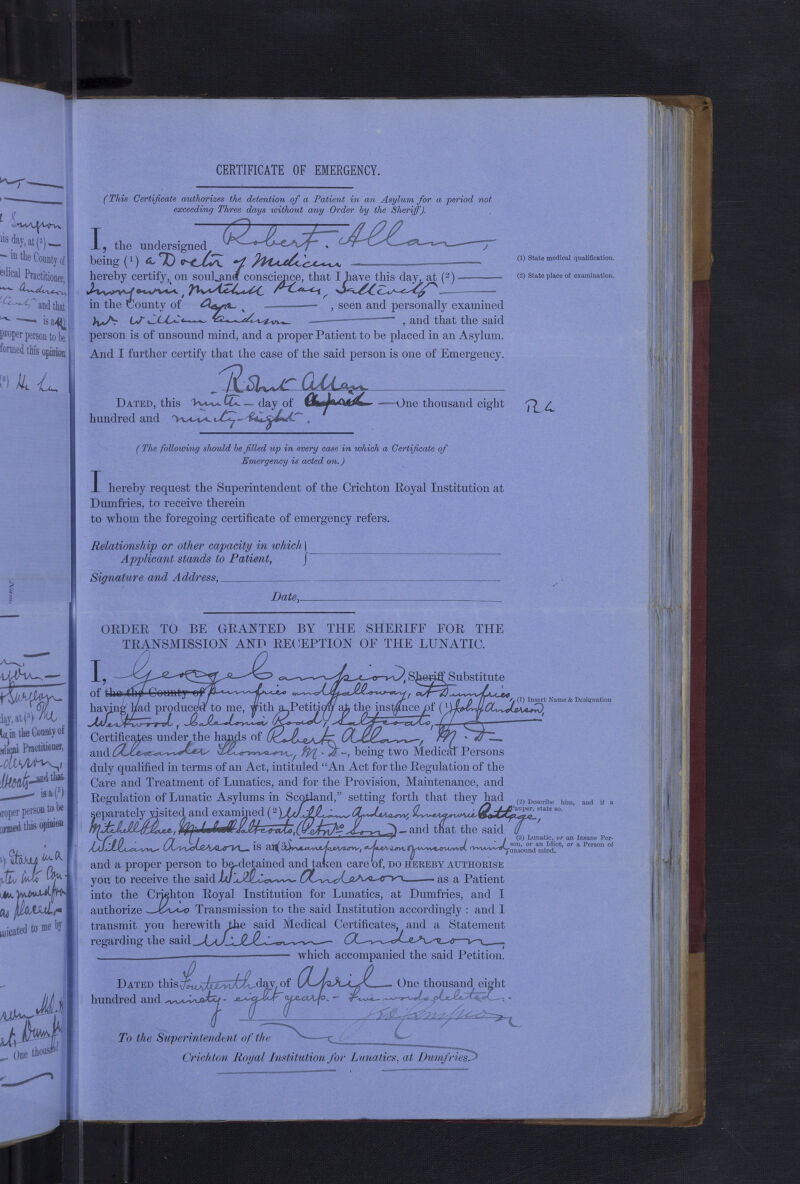 CERTIFICATE OF EMERGENCY.
(This Certificate authorizes the detention of a Patient in an Asylum for a period not
exceeding Three days without any Order by the Sheriff).
I, the undersigned Robert Allan,
being (1) a Doctor of Medicine
(1) State medical qualification.
hereby certify, on soul and conscience, that I have this day, at (2)
(2) State place of examination.
Invergowrie, Mitchell Place, Saltcoats
in the County of Ayr, seen and personally examined
Mr. William Anderson, and that the said
person is of unsound mind, and a proper Patient to be placed in an Asylum.
And I further certify that the case of the said person is one of Emergency.
Robert Allan
DATED, this ninth day of April One thousand eight
R A
hundred and ninety-eight.
(The following should be filled up in every case in which a Certificate of
Emergency is acted on.)
I hereby request the Superintendent of the Crichton Royal Institution at
Dumfries, to receive therein
to whom the foregoing certificate of emergency refers.
Relationship or other capacity in which
Applicant stands to Patient,
Signature and Address,
Date,
ORDER TO BE GRANTED BY THE SHERIFF FOR THE
TRANSMISSION AND RECEPTION OF THE LUNATIC.
I, George Campion, Sheriff Substitute
of the the County of Dumfries and Galloway, at Dumfries,
(1) Insert Name & Designation
having had produced to me, with a Petition at the instance of (1) John Anderson,
Westwood, Caledonia Road, Saltcoats,
Certificates under the hands of Robert Allan, M.D.
and Alexander Thomson, M.D., being two Medical Persons
duly qualified in terms of an Act, intituled "An Act for the Regulation of the
Care and Treatment of Lunatics, and for the Provision, Maintenance, and
Regulation of Lunatic Asylums in Scotland," setting forth that they had
(2) Describe him, and if a
Pauper, state so.
separately visited and examined (2) William Anderson, Invergowrie Cottage,
Mitchell Place, Mitchell Saltcoats, (Petnrs Son) and that the said
(3) Lunatic, or an Insane Person, or an Idiot, or a Person of
unsound mind.
William Anderson is an (3) insane person, a person of unsound mind
and a proper person to be detained and taken care of, DO HEREBY AUTHORISE
you to receive the said William Anderson as a Patient
into the Crichton Royal Institution for Lunatics, at Dumfries, and I
authorize his Transmission to the said Institution accordingly: and I
transmit you herewith the said Medical Certificates, and a Statement
regarding the said William Anderson,
which accompanied the said Petition.
DATED this Fourteenth day of April One thousand eight
hundred and ninety-eight years. - Five words deleted.
To the Superintendent of the
Crichton Royal Institution for Lunatics, at Dumfries.